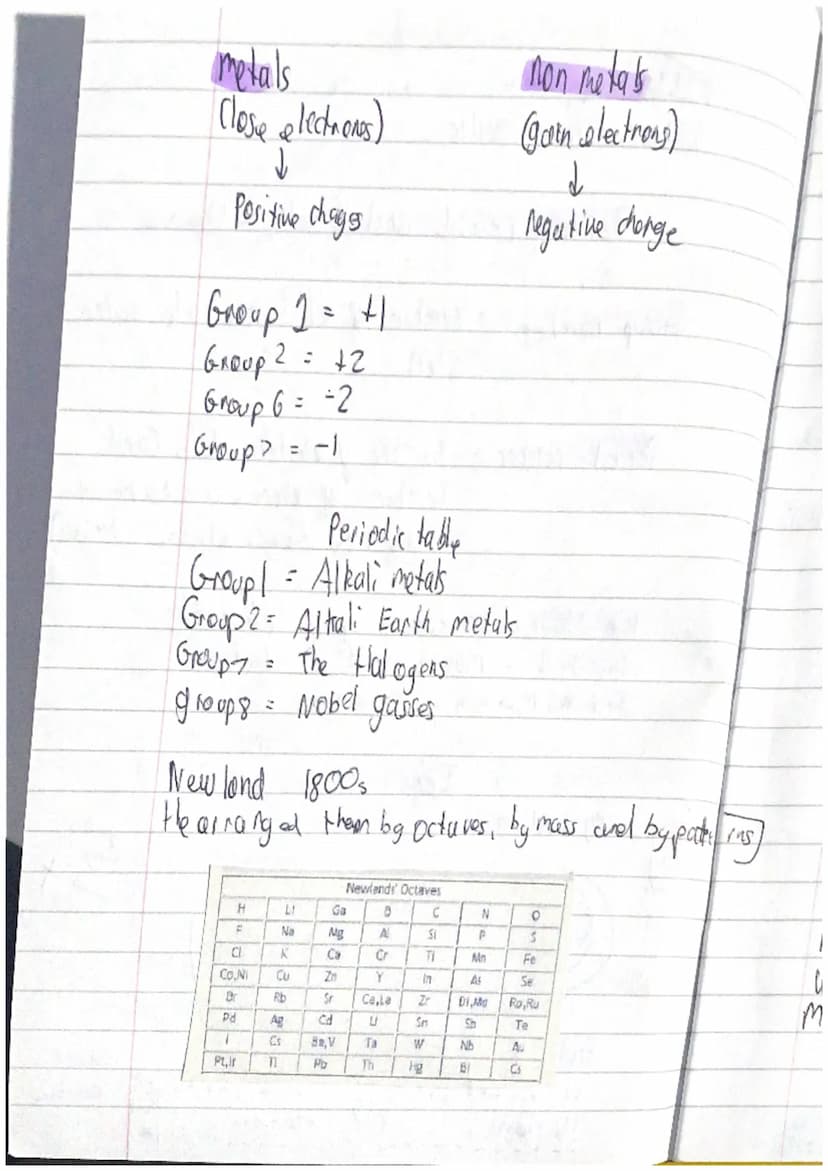 metals non metals
(lose electrones) (gain electrons)
↓ ↓
Positive chages negative charge
Group 1 = +1
Group 2 = +2
Group 6 = -2
Group 7 = -1
Periodic table
Group 1 = Alkali metals
Group 2 = Alkali Earth metals
Group 7 = The Halogens
group 8 = Nobel gasses
Newland 1800s
He arranged them by octaves, by mass and by
Newlands' Octaves
H Li Ga B C N O
F Na Mg Al Si P S
Cl K Ca Cr Ti Mn Fe
Co,Ni Cu Zn Y In As Se
Br Rb Sr Ce,La Zr Di,Mo Ro,Ru
Pd Ag Cd U Sn Sb Te
I Cs Ba,V Ta W Nb Au
Pt,Ir Tl Pb Th Hg Bi Cs